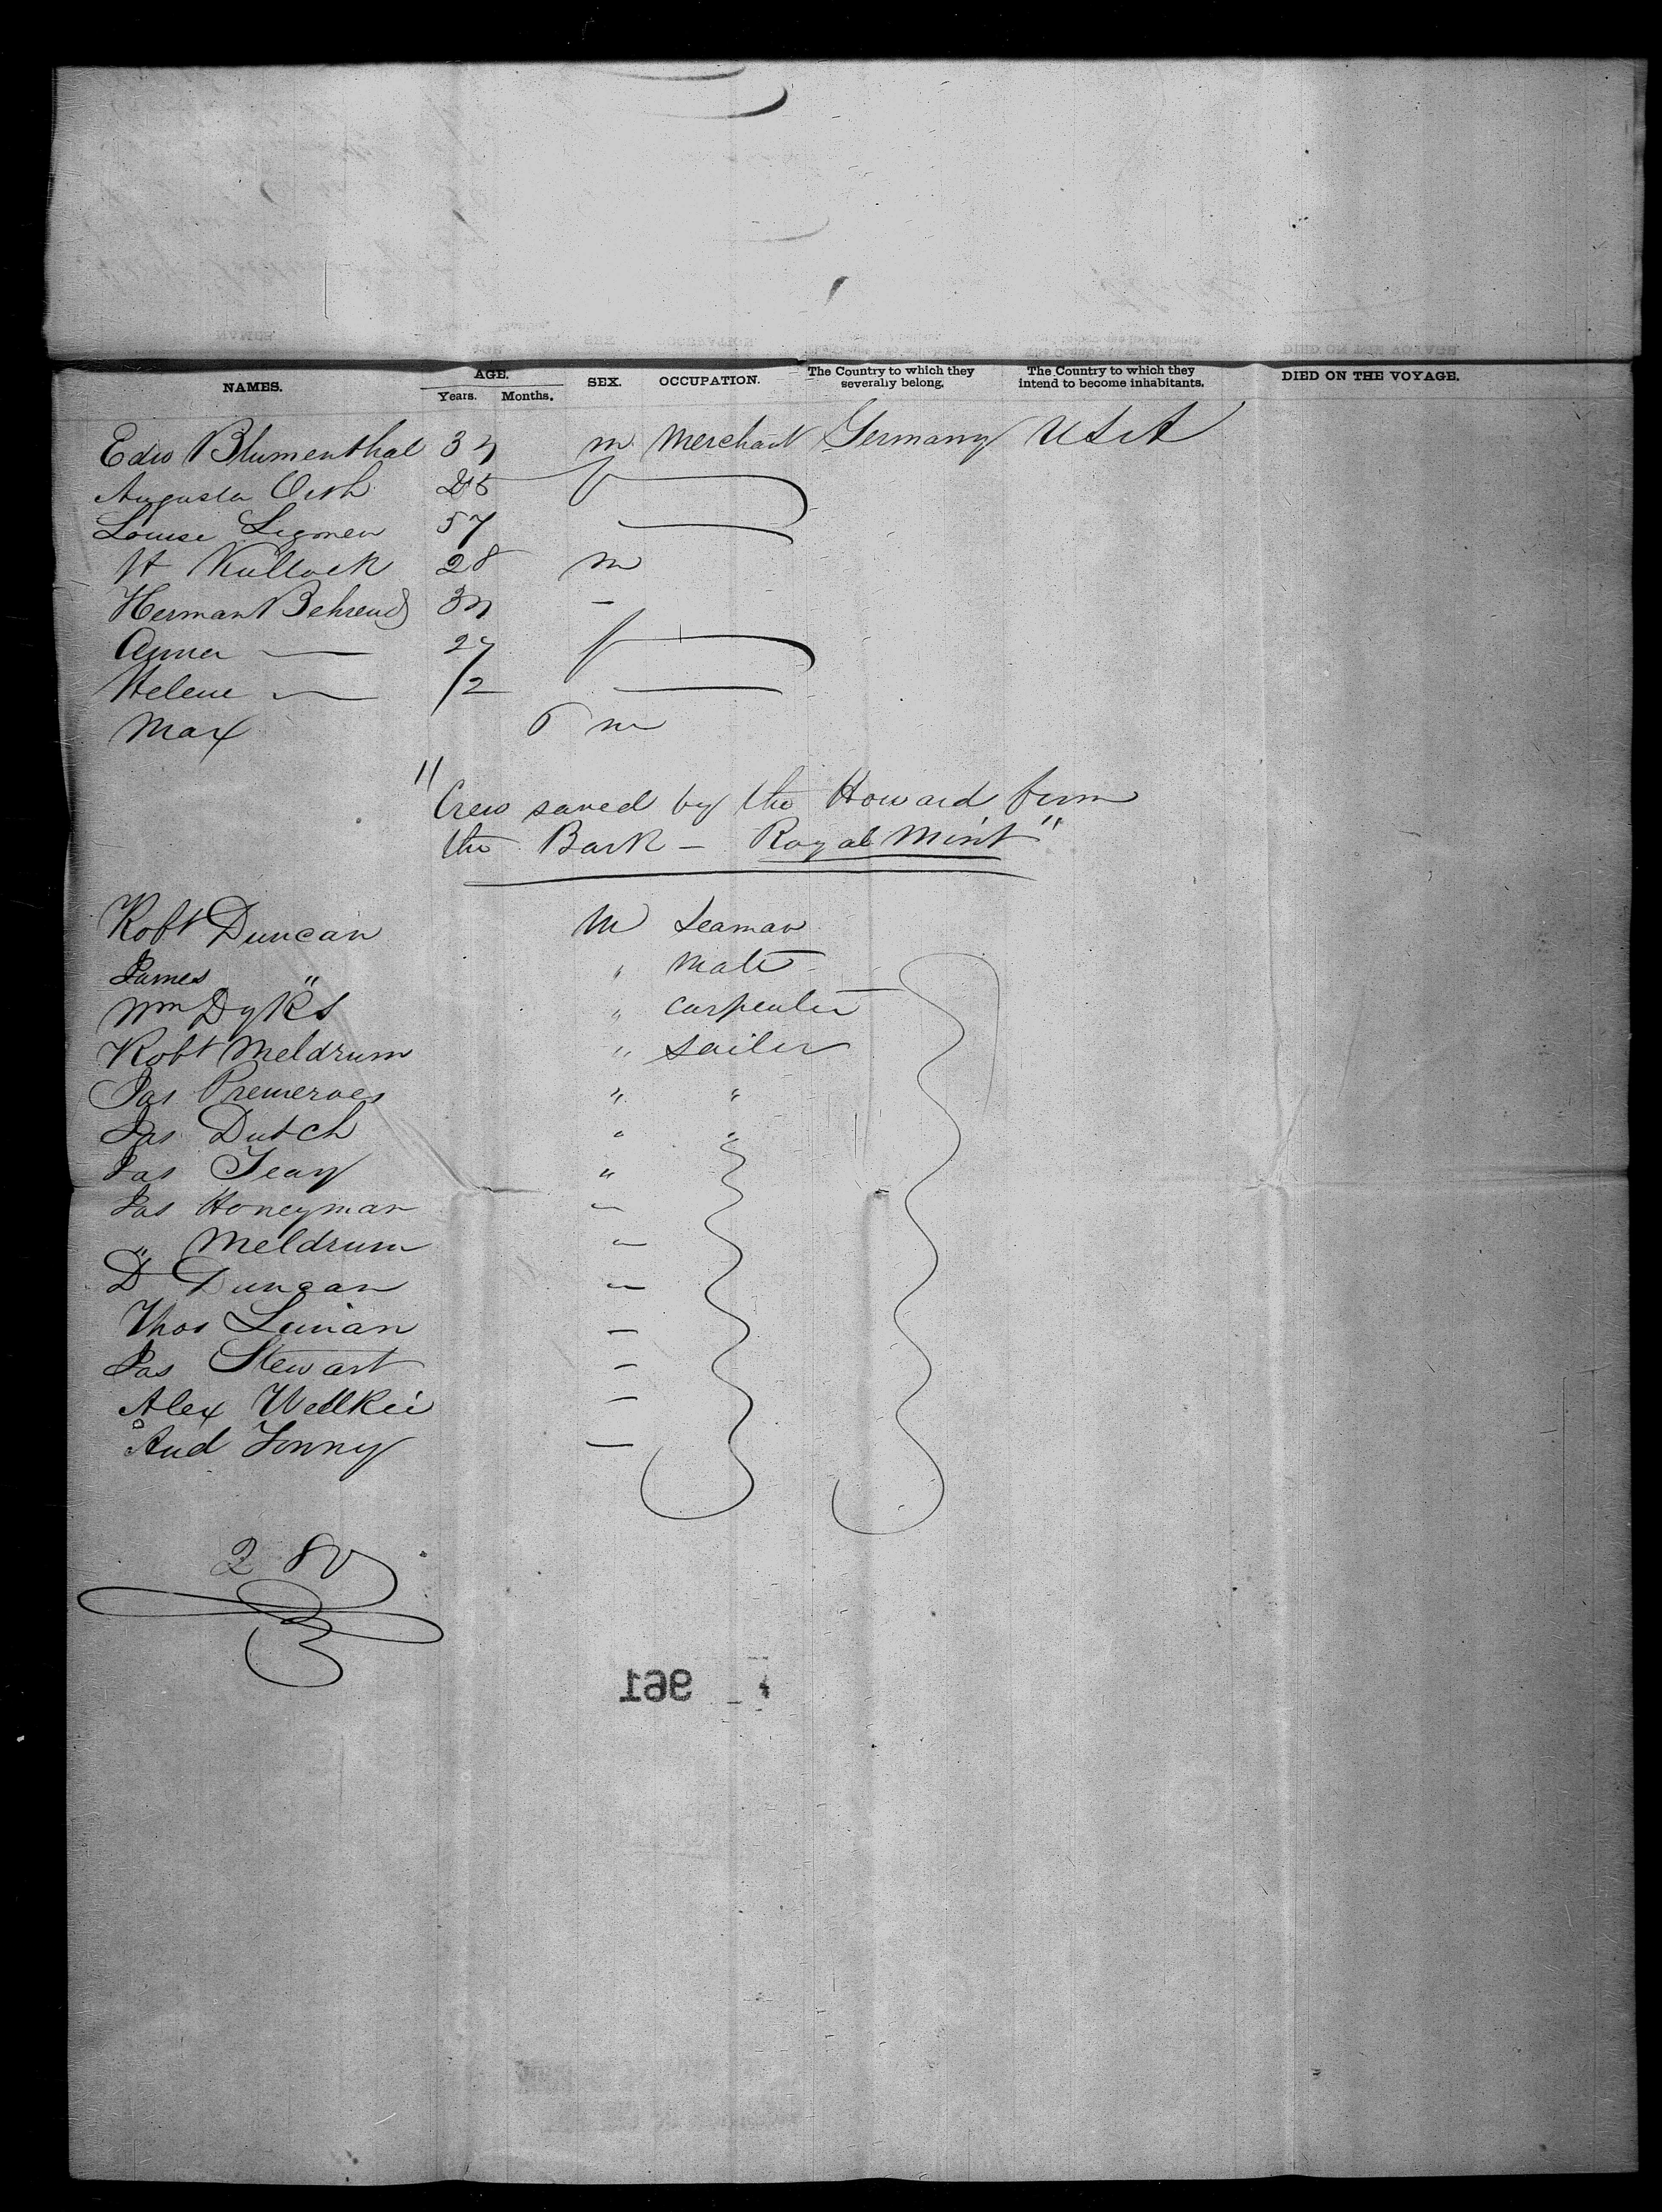 NAMES. AGE. Years. Months. SEX. OCCUPATION. The Country to which they severally belong. The Country to which they intend to become inhabitants. DIED ON THE VOYAGE.
Edw Blumenthal 34 m Merchant Germany USA
Augusta 25 f
Louise 57
H 28 m
Herman Behrend 34 –
Anna — 27 f
Helene — /2
Max 6 m
"Crew saved by the Howard from
the Bark – Royal Mint"
Robt Duncan M Seaman
James " " Mate
Wm Dyks " Carpenter
Robt Meldrum " Sailer
Jas " "
Jas Dutch " "
Jas "
Jas Honeyman "
" Meldrum "
D Duncan "
Thos –
Jas Stewart –
Alex –
And –
280
196